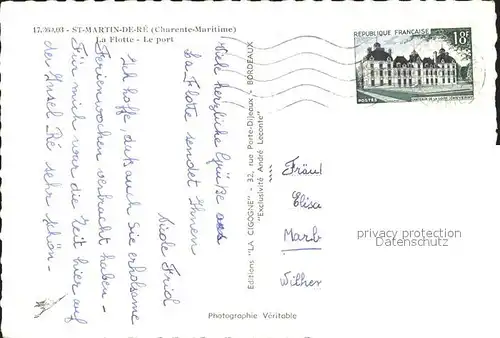 17.369.03 - ST-MARTIN-DE-RÉ (Charente-Maritime)
La Flotte - Le port
Viele herzliche Grüße aus
La Flotte sendet Ihnen
Frid
Ich hoffe, daß auch Sie erholsame
Ferienwochen verbracht haben -
Für mich war die Zeit hier auf
der Insel Ré sehr schön -
Editions "LA CIGOGNE" - 32, rue Porte-Dijeaux - BORDEAUX
"Exclusivité André Leconte"
Photographie Véritable
RÉPUBLIQUE FRANÇAISE
18F
POSTES
Fräul
Elisa
Marb
Wilhe
privacy protection
Datenschutz